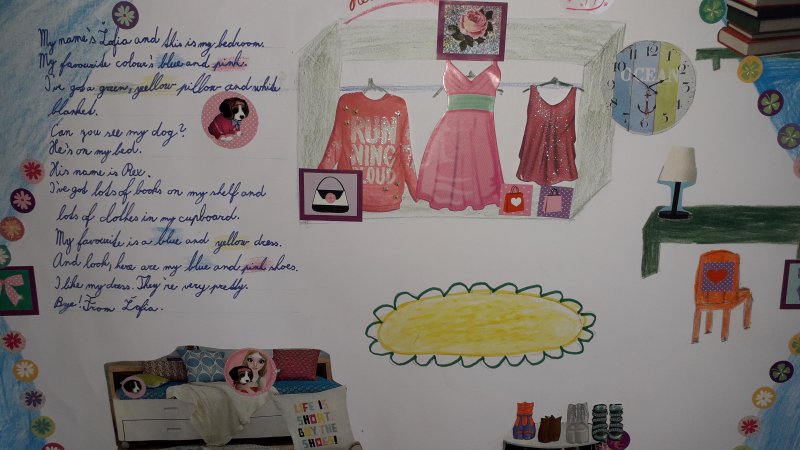 My name's Zofia and this is my bedroom.
My favourite colour's blue and pink.
I've got a green, yellow pillow and white
blanket.
Can you see my dog?
He's on my bed.
His name is Rex.
I've got lots of books on my shelf and
lots of clothes in my cupboard.
My favourite is a blue and yellow dress.
And look, here are my blue and pink shoes.
I like my dress. They're very pretty.
Bye! From Zofia.
RUN
NING
LOUD
OCEAN
LIFE IS
SHORT
BUY THE
SHOES!